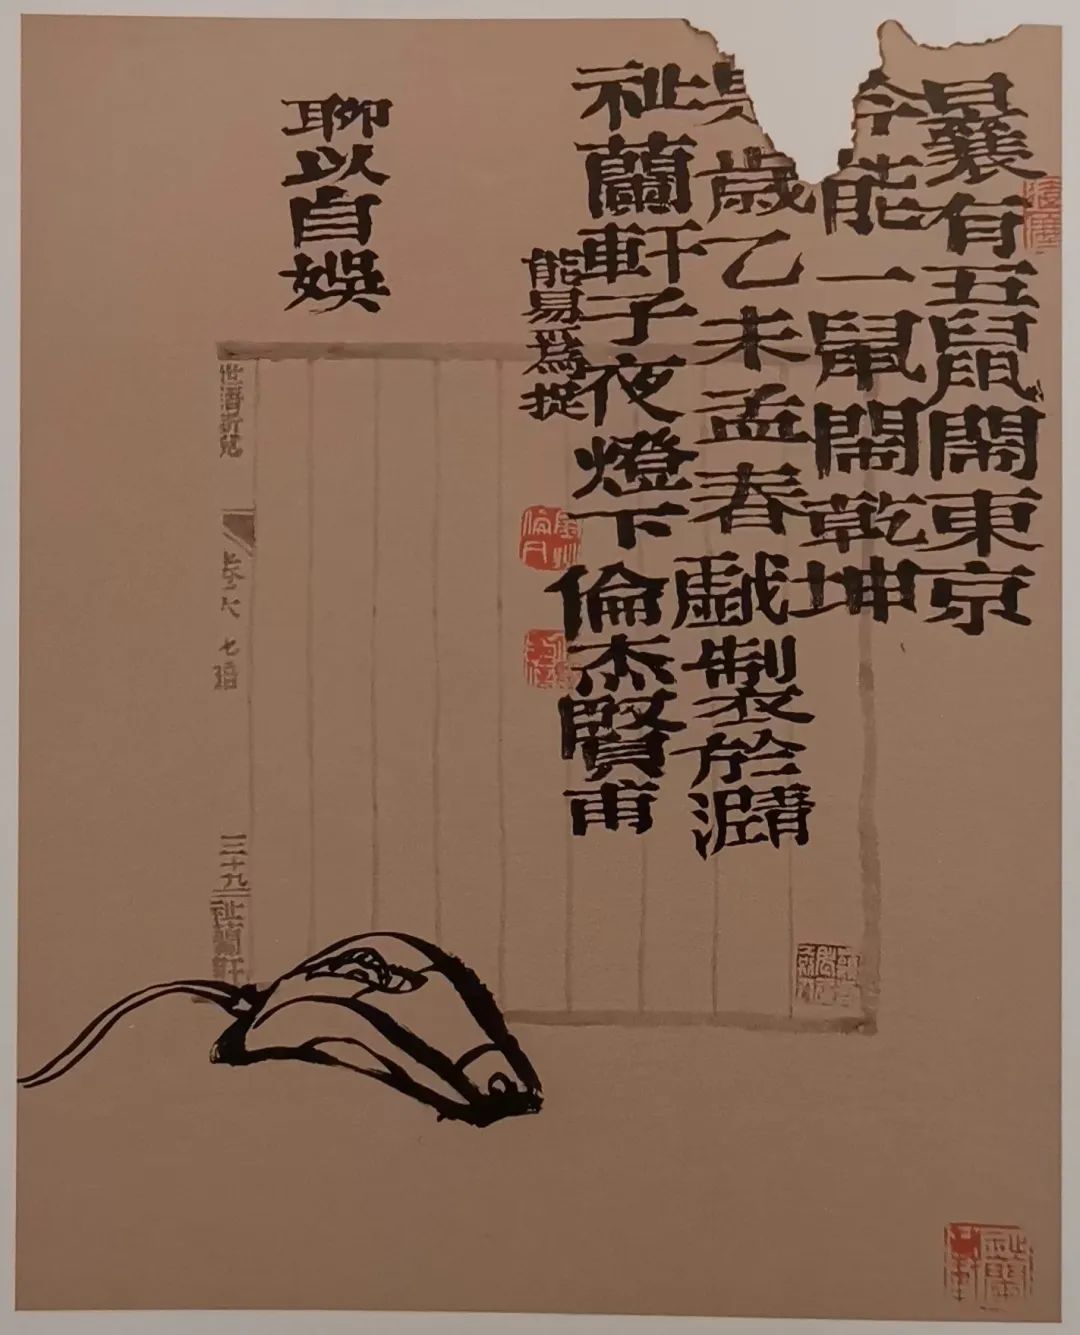 曩有五鼠鬧東京
今能一鼠鬧乾坤
歲乙未孟春戲製於潤
祉蘭軒子夜燈下倫杰賢甫
能易為捉
聊以自娛
卷六
七
三十九
祉蘭軒